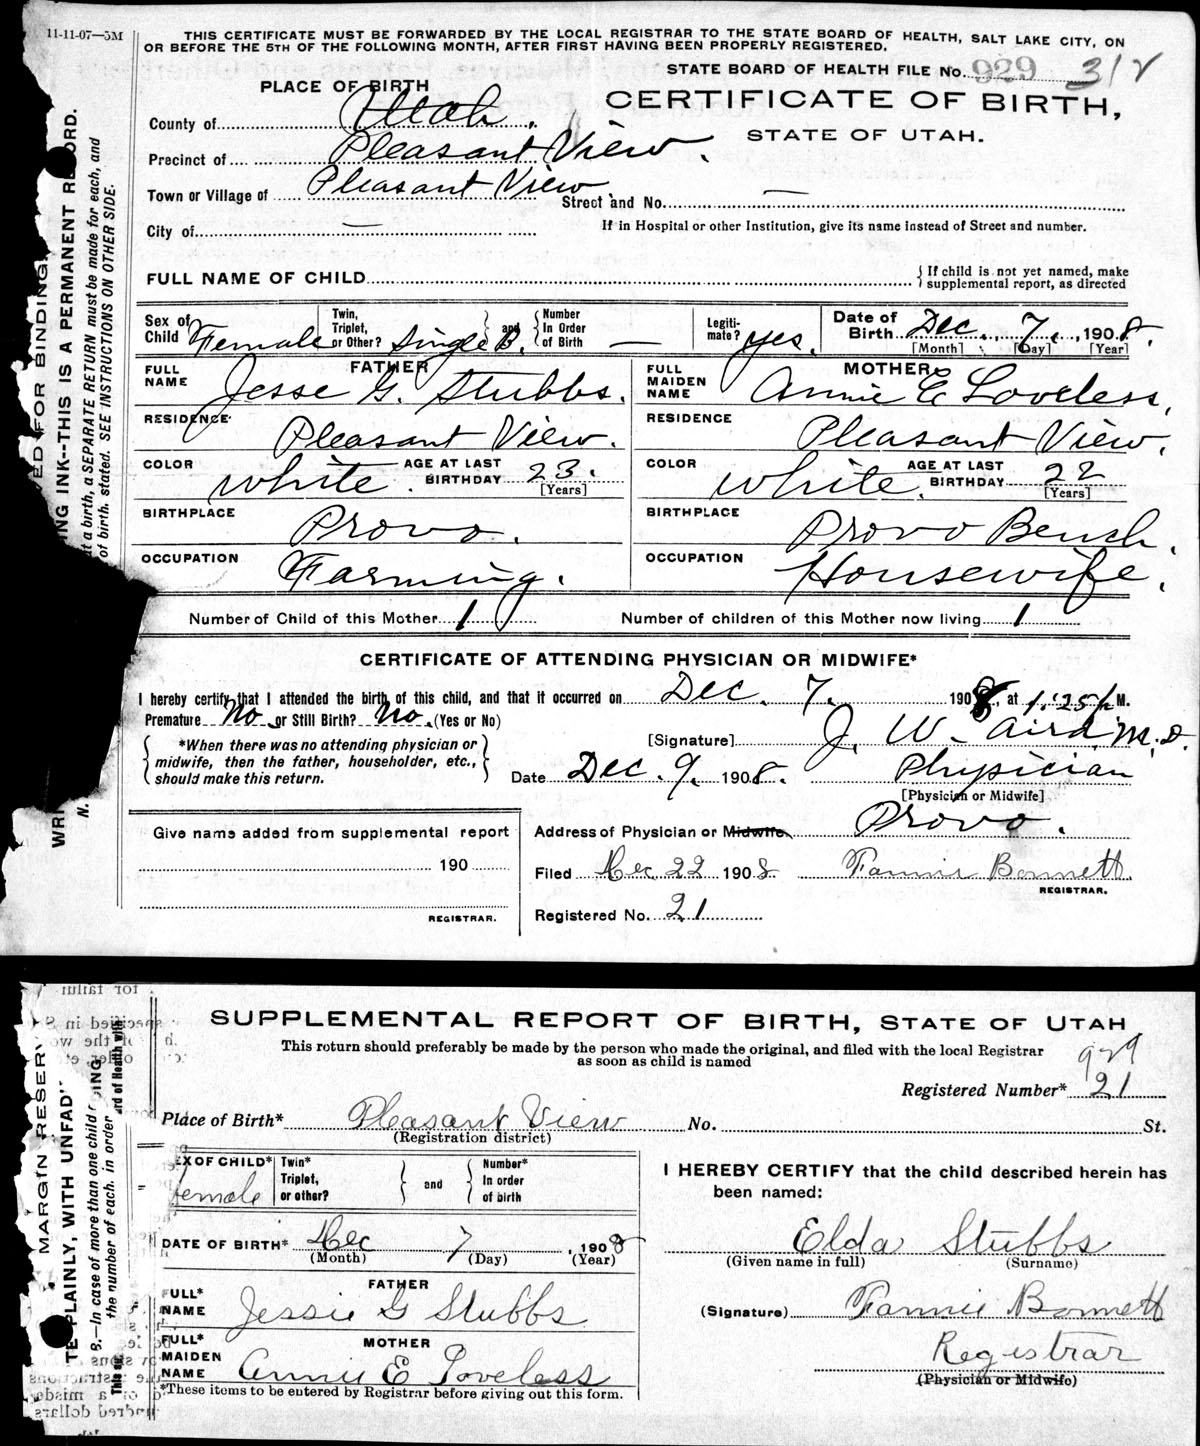 11-11-07—5M
THIS CERTIFICATE MUST BE FORWARDED BY THE LOCAL REGISTRAR TO THE STATE BOARD OF HEALTH, SALT LAKE CITY, ON
OR BEFORE THE 5TH OF THE FOLLOWING MONTH, AFTER FIRST HAVING BEEN PROPERLY REGISTERED.
STATE BOARD OF HEALTH FILE No. 929 312
PLACE OF BIRTH
CERTIFICATE OF BIRTH,
STATE OF UTAH.
County of Utah.
Precinct of Pleasant View.
Town or Village of Pleasant View. Street and No. —
City of —
If in Hospital or other Institution, give its name instead of Street and number.
FULL NAME OF CHILD
If child is not yet named, make
supplemental report, as directed
Sex of Child Female Twin, Triplet, or Other? Single B. and Number In Order of Birth — Legiti-mate? yes. Date of Birth Dec. 7. 1908.
[Month] [Day] [Year]
FATHER
FULL NAME Jesse G. Stubbs.
RESIDENCE Pleasant View.
COLOR White. AGE AT LAST BIRTHDAY 23. [Years]
BIRTHPLACE Provo.
OCCUPATION Farming.
MOTHER
FULL MAIDEN NAME Annie E Loveless.
RESIDENCE Pleasant View.
COLOR White. AGE AT LAST BIRTHDAY 22 [Years]
BIRTHPLACE Provo Bench.
OCCUPATION Housewife.
Number of Child of this Mother 1 Number of children of this Mother now living 1
CERTIFICATE OF ATTENDING PHYSICIAN OR MIDWIFE*
I hereby certify that I attended the birth of this child, and that it occurred on Dec. 7. 1908, at 1:25 p M.
Premature No or Still Birth? No. (Yes or No)
*When there was no attending physician or
midwife, then the father, householder, etc.,
should make this return.
[Signature] J. W. Aird M.D.
Date Dec. 9. 1908. Physician
[Physician or Midwife]
Give name added from supplemental report
190
REGISTRAR.
Address of Physician or Midwife Provo.
Filed Dec 22 1908. Fannie Bonnett
REGISTRAR.
Registered No. 21
ED FOR BINDING
ING INK--THIS IS A PERMANENT RECORD.
at a birth, a SEPARATE RETURN must be made for each, and
of birth. stated. SEE INSTRUCTIONS ON OTHER SIDE.
WRI
N.
SUPPLEMENTAL REPORT OF BIRTH, STATE OF UTAH
This return should preferably be made by the person who made the original, and filed with the local Registrar
as soon as child is named
929
Registered Number* 21
Place of Birth* Pleasant View No. St.
(Registration district)
SEX OF CHILD* Female Twin* Triplet, or other? and Number* In order of birth
DATE OF BIRTH* Dec 7, 1908
(Month) (Day) (Year)
FATHER
FULL* NAME Jessie G Stubbs
MOTHER
FULL* MAIDEN NAME Annie E Loveless
*These items to be entered by Registrar before giving out this form.
I HEREBY CERTIFY that the child described herein has
been named:
Elda Stubbs
(Given name in full) (Surname)
(Signature) Fannie Bonnett
Registrar
(Physician or Midwife)
MARGIN RESERV
TE PLAINLY, WITH UNFAD
B.—In case of more than one child
the number of each, in order